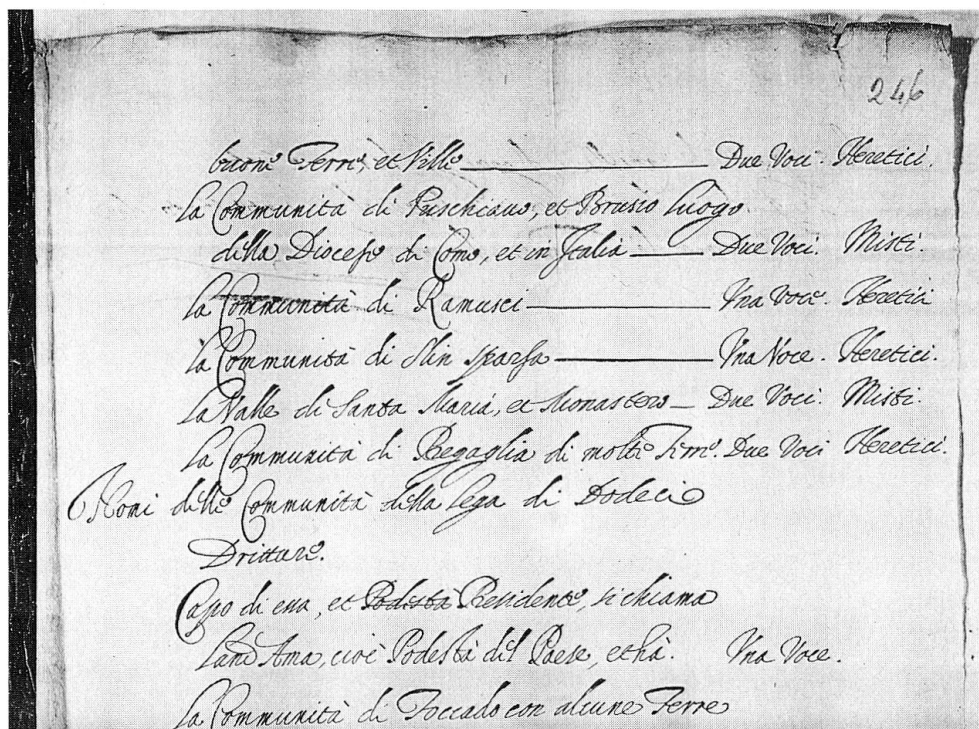 246
buone Terre, et Ville Due Voci. Heretici.
La Communità di Puschiavo, et Brusio luogo
della Diocese di Como, et in Italia Due Voci. Misti.
La Communità di Ramusci Una Voce. Heretici
La Communità di Slin sparsa Una Voce. Heretici.
La Valle di Santa Maria, et Monastero Due Voci. Misti.
La Communità di Begaglia di molte Terre. Due Voci Heretici.
Nomi delle Communità della lega di Dodeci
Dritture.
Capo di essa, et Podestà Residente, si chiama
Land Ama, cioè Podestà del Paese, et hà. Una Voce.
La Communità di Toccado con alcune Terre